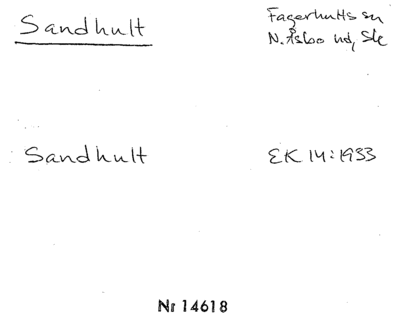 Sandhult
Fagerhults sn
N. Åsbo hd, Sk
Sandhult
EK 14:1933
Nr 14618